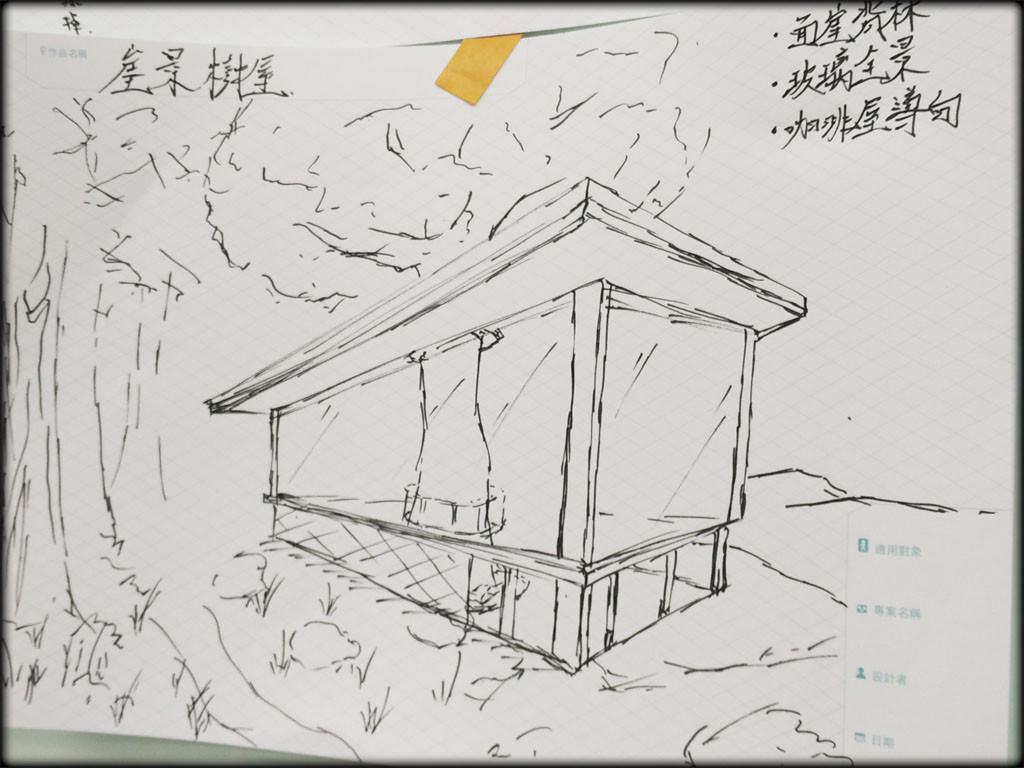 作品名稱
崖景樹屋
・面崖、背林
・玻璃全景
・咖啡屋導向
適用對象
專案名稱
設計者
日期